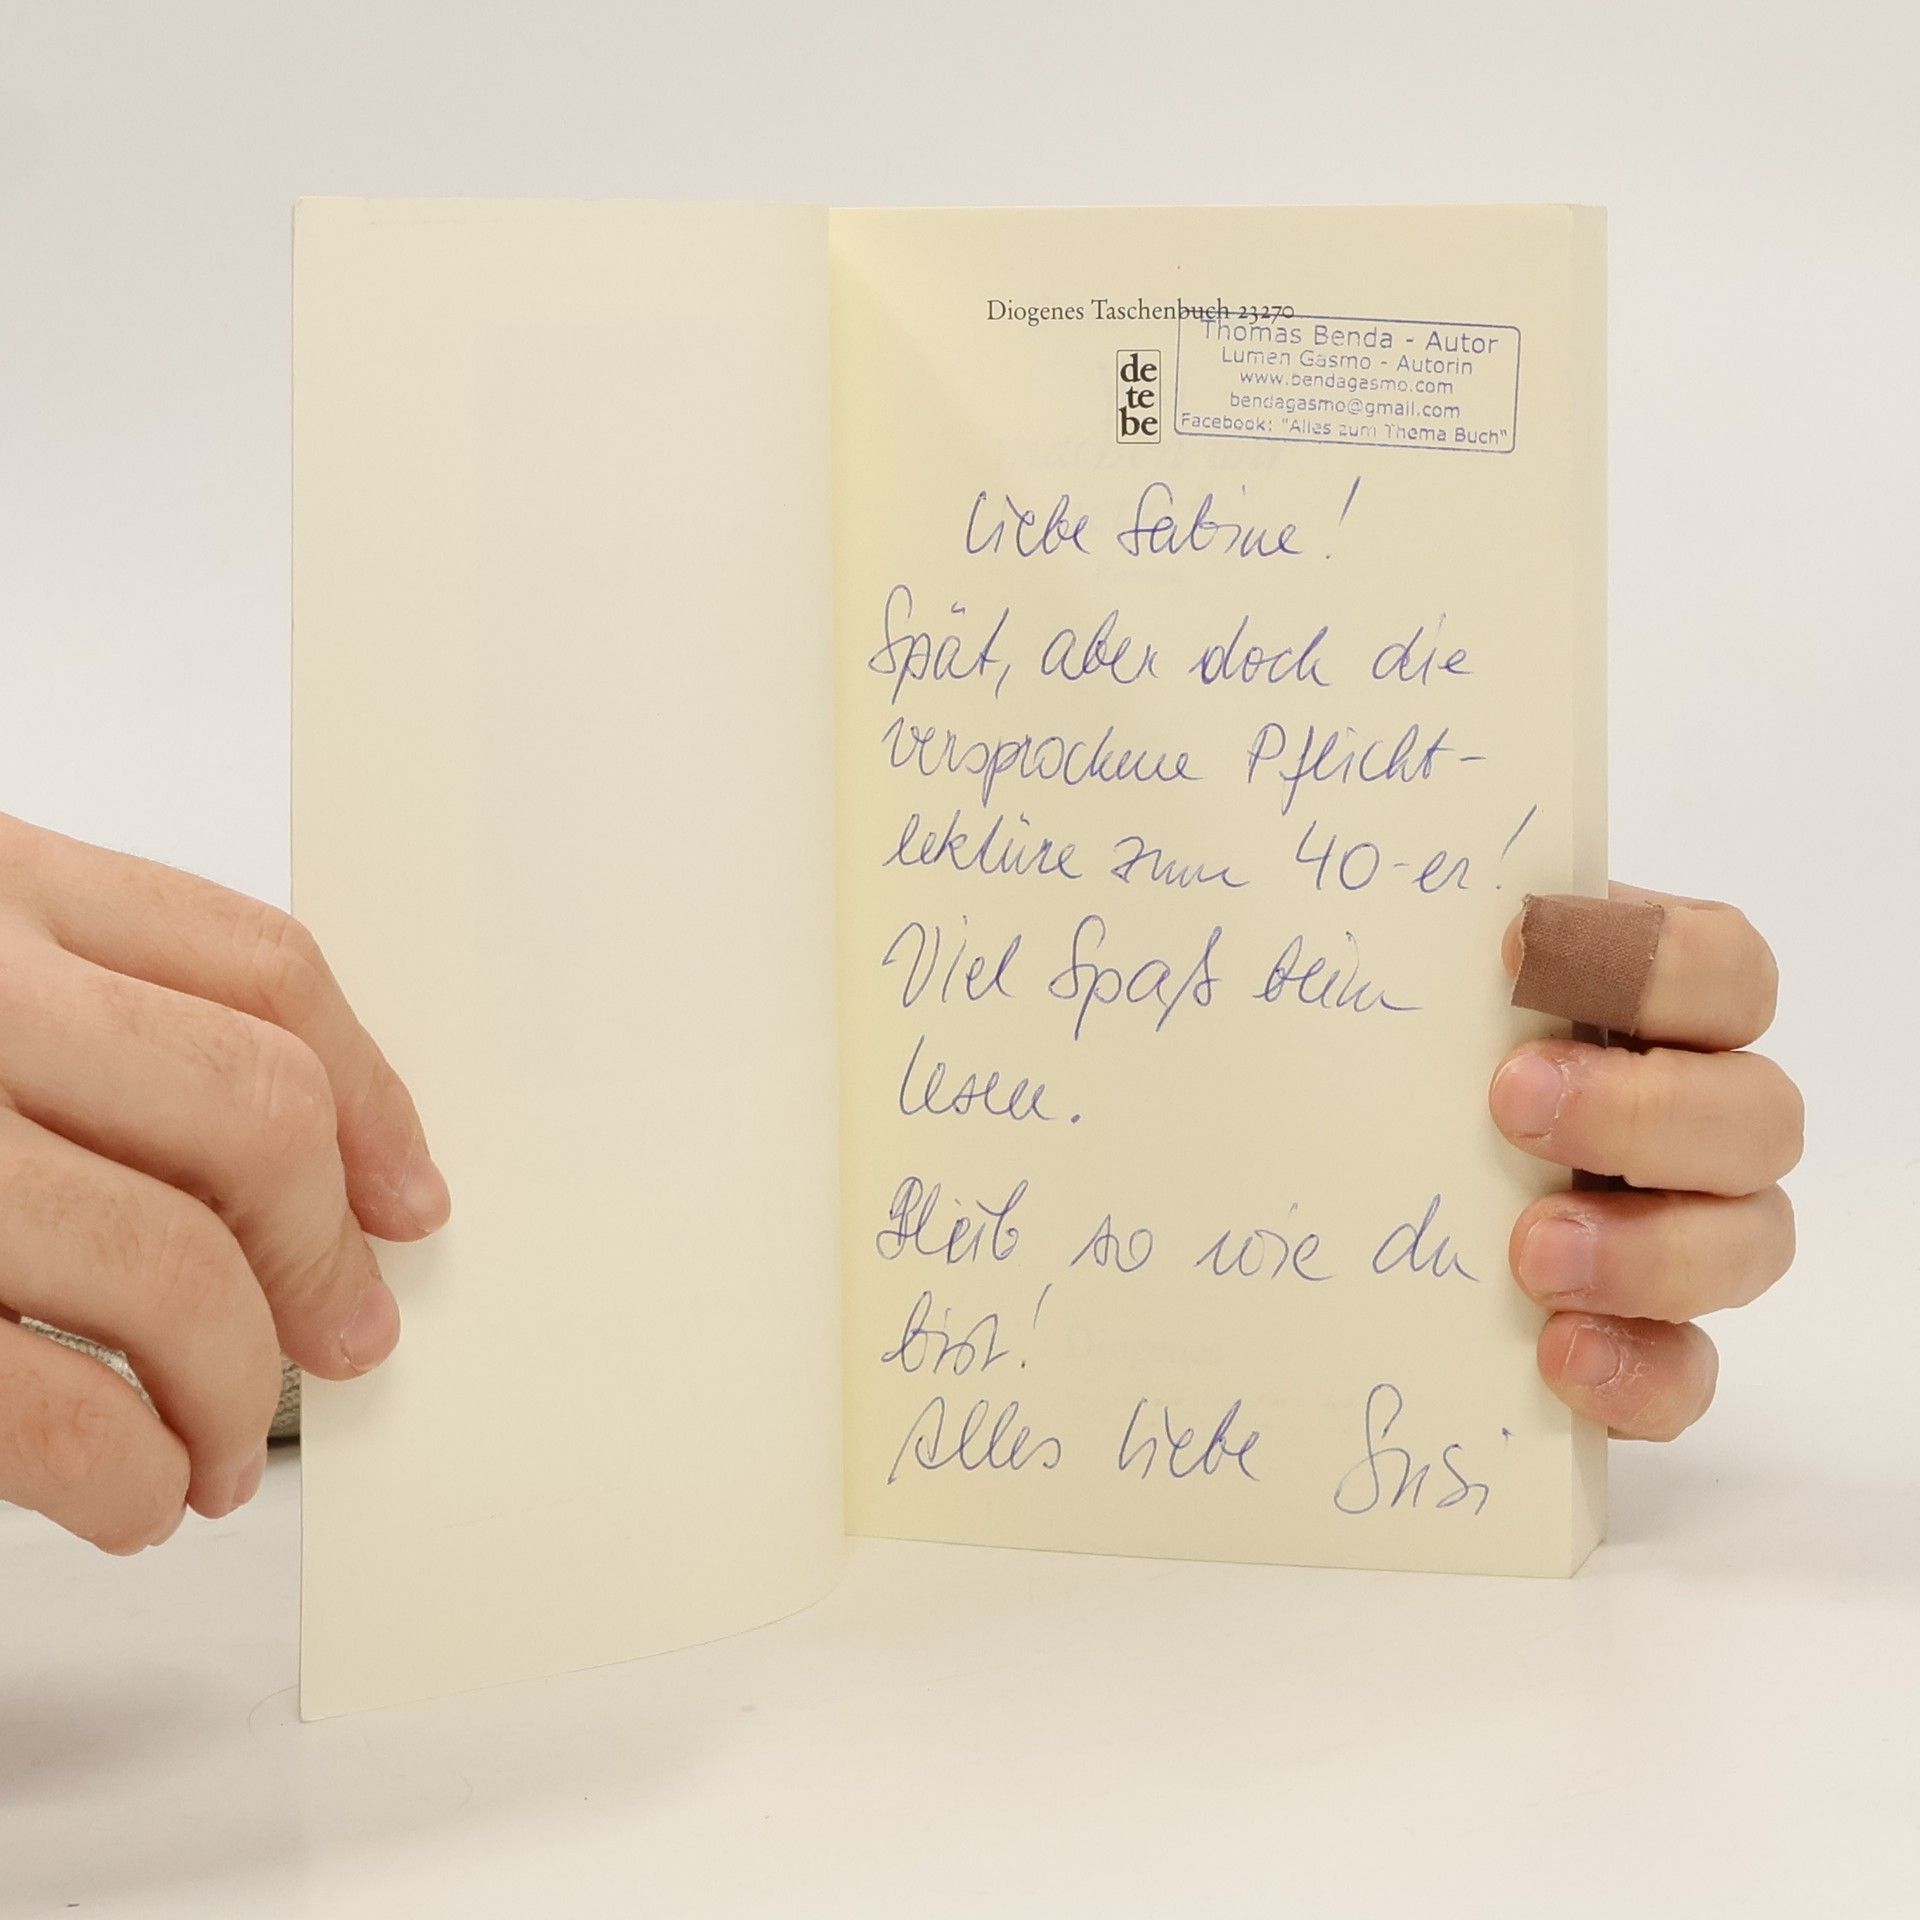 Diogenes Taschenbuch 23270
de
te
be
Thomas Benda - Autor
Lumen Gasmo - Autorin
www.bendagasmo.com
bendagasmo@gmail.com
Facebook: "Alles zum Thema Buch"
Liebe Sabine!
Spät, aber doch die
versprochene Pflicht-
lektüre zum 40-er!
Viel Spaß beim
lesen.
Bleib so wie du
bist!
Alles Liebe Susi